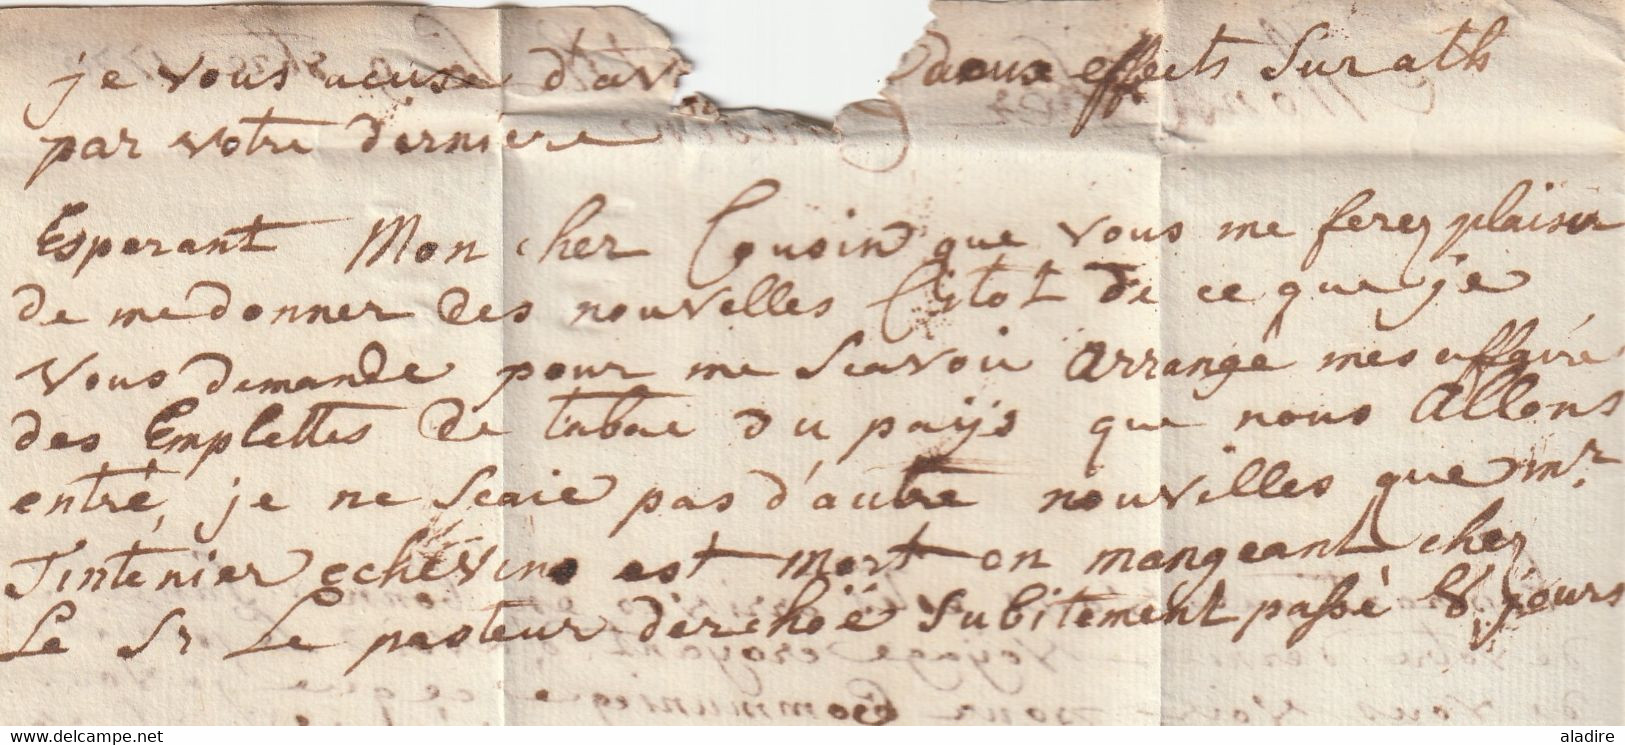 je vous acuse d'av deux effects Surath
par votre derniere
Esperant Mon cher Cousin que vous me ferez plaisir
de me donner des nouvelles Citot de ce que je
vous demande pour me scavoir arrange mes affaire
des Emplettes de tabac du païjs que nous allons
entré, je ne scaie pas d'autre nouvelles que mr.
Tintenier echevins est mort en mangeant chez
Le Sr Le pasteur d'erchoë Subitement passé 8 jours
delcampe.net
aladire